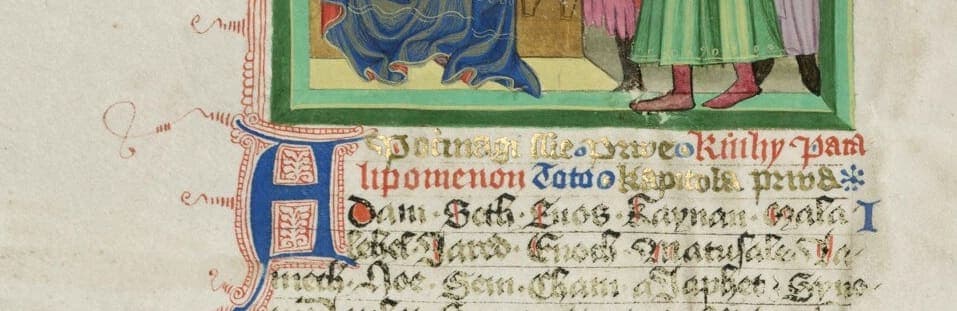 Poczinagi sie prwe Knihy Para
lipomenon Toto Kapitola prwa
Adam · Seth · Enos · Kaynan · Mala I
lehel · Jared · Enoch · Matusale · La
mech · Noe · Sem · Cham a Japhet · Syno